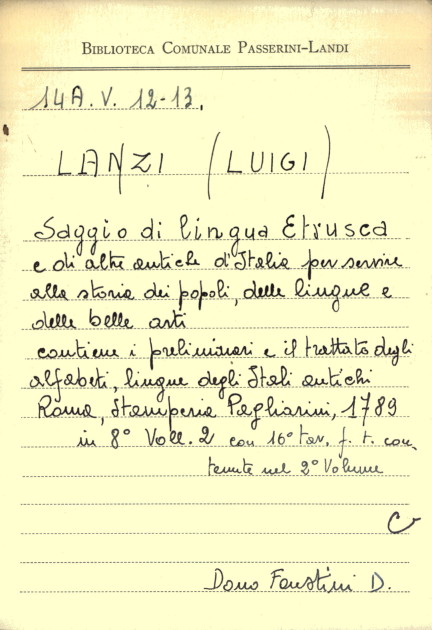 BIBLIOTECA COMUNALE PASSERINI-LANDI
14A. V. 12-13.
LANZI (LUIGI)
Saggio di lingua Etrusca
e di altre antiche d'Italia per servire
alla storia dei popoli, delle lingue e
delle belle arti
contiene i preliminari e il trattato degli
alfabeti, lingue degli Itali antichi
Roma, Stamperia Pagliarini, 1789
in 8° Voll. 2 con 16 tav. f. t. con
tenute nel 2° Volume
C
Dono Faustini D.